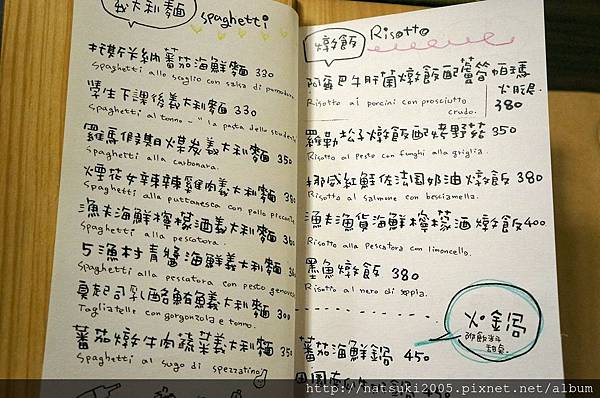 義大利麵 spaghetti
托斯卡納蕃茄海鮮麵 330
Spaghetti allo scoglio con salsa di pomodoro.
學生下課後義大利麵 330
Spaghetti al tonno - "la pata dello studente
羅馬假期煤炭義大利麵 350
Spaghetti alla carbonara.
煙花女辣辣雞肉義大利麵 350
Spaghetti alla puttanesca con pollo piccante
漁夫海鮮檸檬酒義大利麵
Spaghetti alla pescatora.
5漁村青醬海鮮義大利麵
Spaghetti alla pescatora con pesto genovese
真起司乳酪鮪魚義大利麵 300
Tagliatelle con gorgonzola e tonno.
蕃茄燉牛肉蔬菜義大利麵 350
Spaghetti al sugo di spezzatino
燉飯 Risotto
阿蛋巴牛肝菌燉飯配蘆筍帕瑪
火腿 380
Risotto ai porcini con prosciutto
crudo.
羅勒松子燉飯配燒野菇 350
Risotto al pesto con funghi alla griglia.
挪威紅鮭佐法國奶油燉飯 380
Risotto al salmone con besciamella.
漁夫漁貨海鮮檸檬酒燉飯 400
Risotto alla pescatora con limoncello.
墨魚燉飯 380
Risotto al nero di seppia.
火鍋
蕃茄海鮮鍋 450
田園
http://natsuki2005.pixnet.net/album